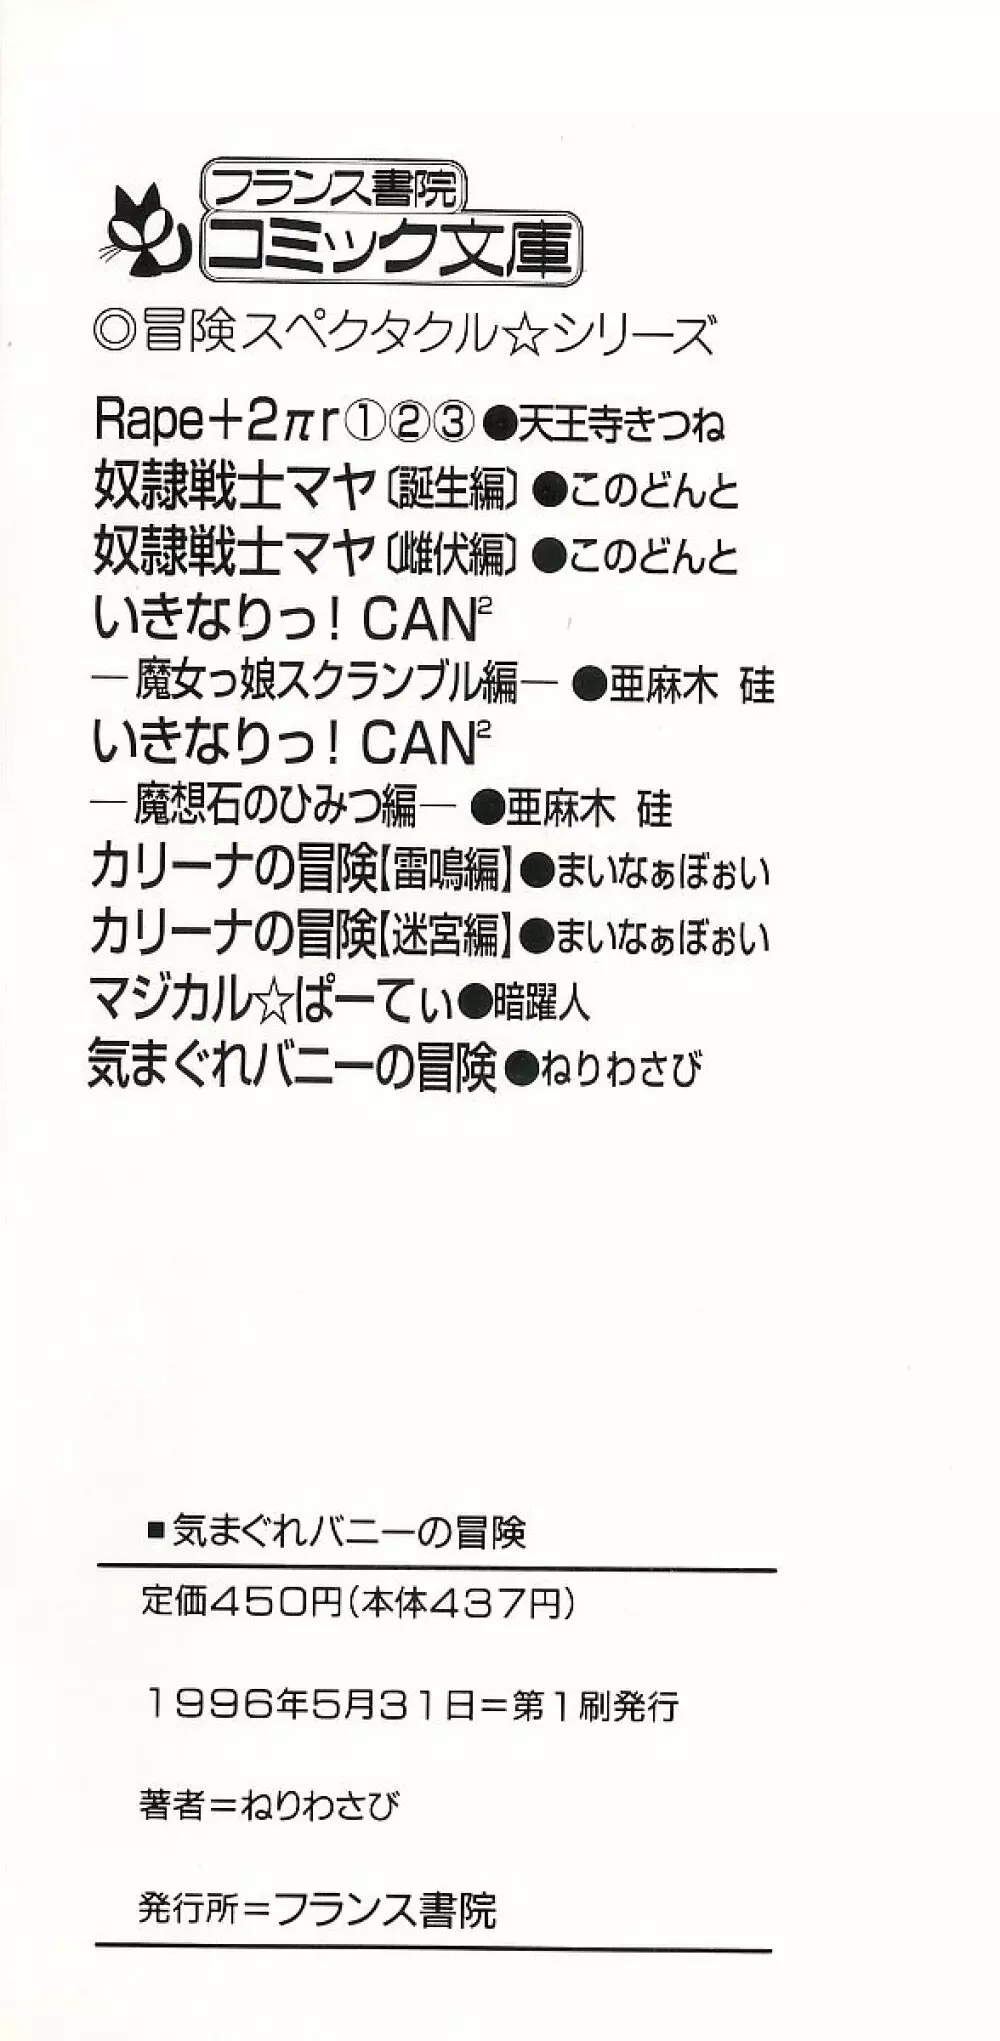 フランス書院
コミック文庫
◎冒険スペクタクル☆シリーズ
Rape+2πr①②③●天王寺きつね
奴隷戦士マヤ〔誕生編〕●このどんと
奴隷戦士マヤ〔雌伏編〕●このどんと
いきなりっ！CAN²
―魔女っ娘スクランブル編―●亜麻木 硅
いきなりっ！CAN²
―魔想石のひみつ編―●亜麻木 硅
カリーナの冒険【雷鳴編】●まいなぁぼぉい
カリーナの冒険【迷宮編】●まいなぁぼぉい
マジカル☆ぱーてぃ●暗躍人
気まぐれバニーの冒険●ねりわさび
■気まぐれバニーの冒険
定価450円(本体437円)
1996年5月31日＝第1刷発行
著者＝ねりわさび
発行所＝フランス書院